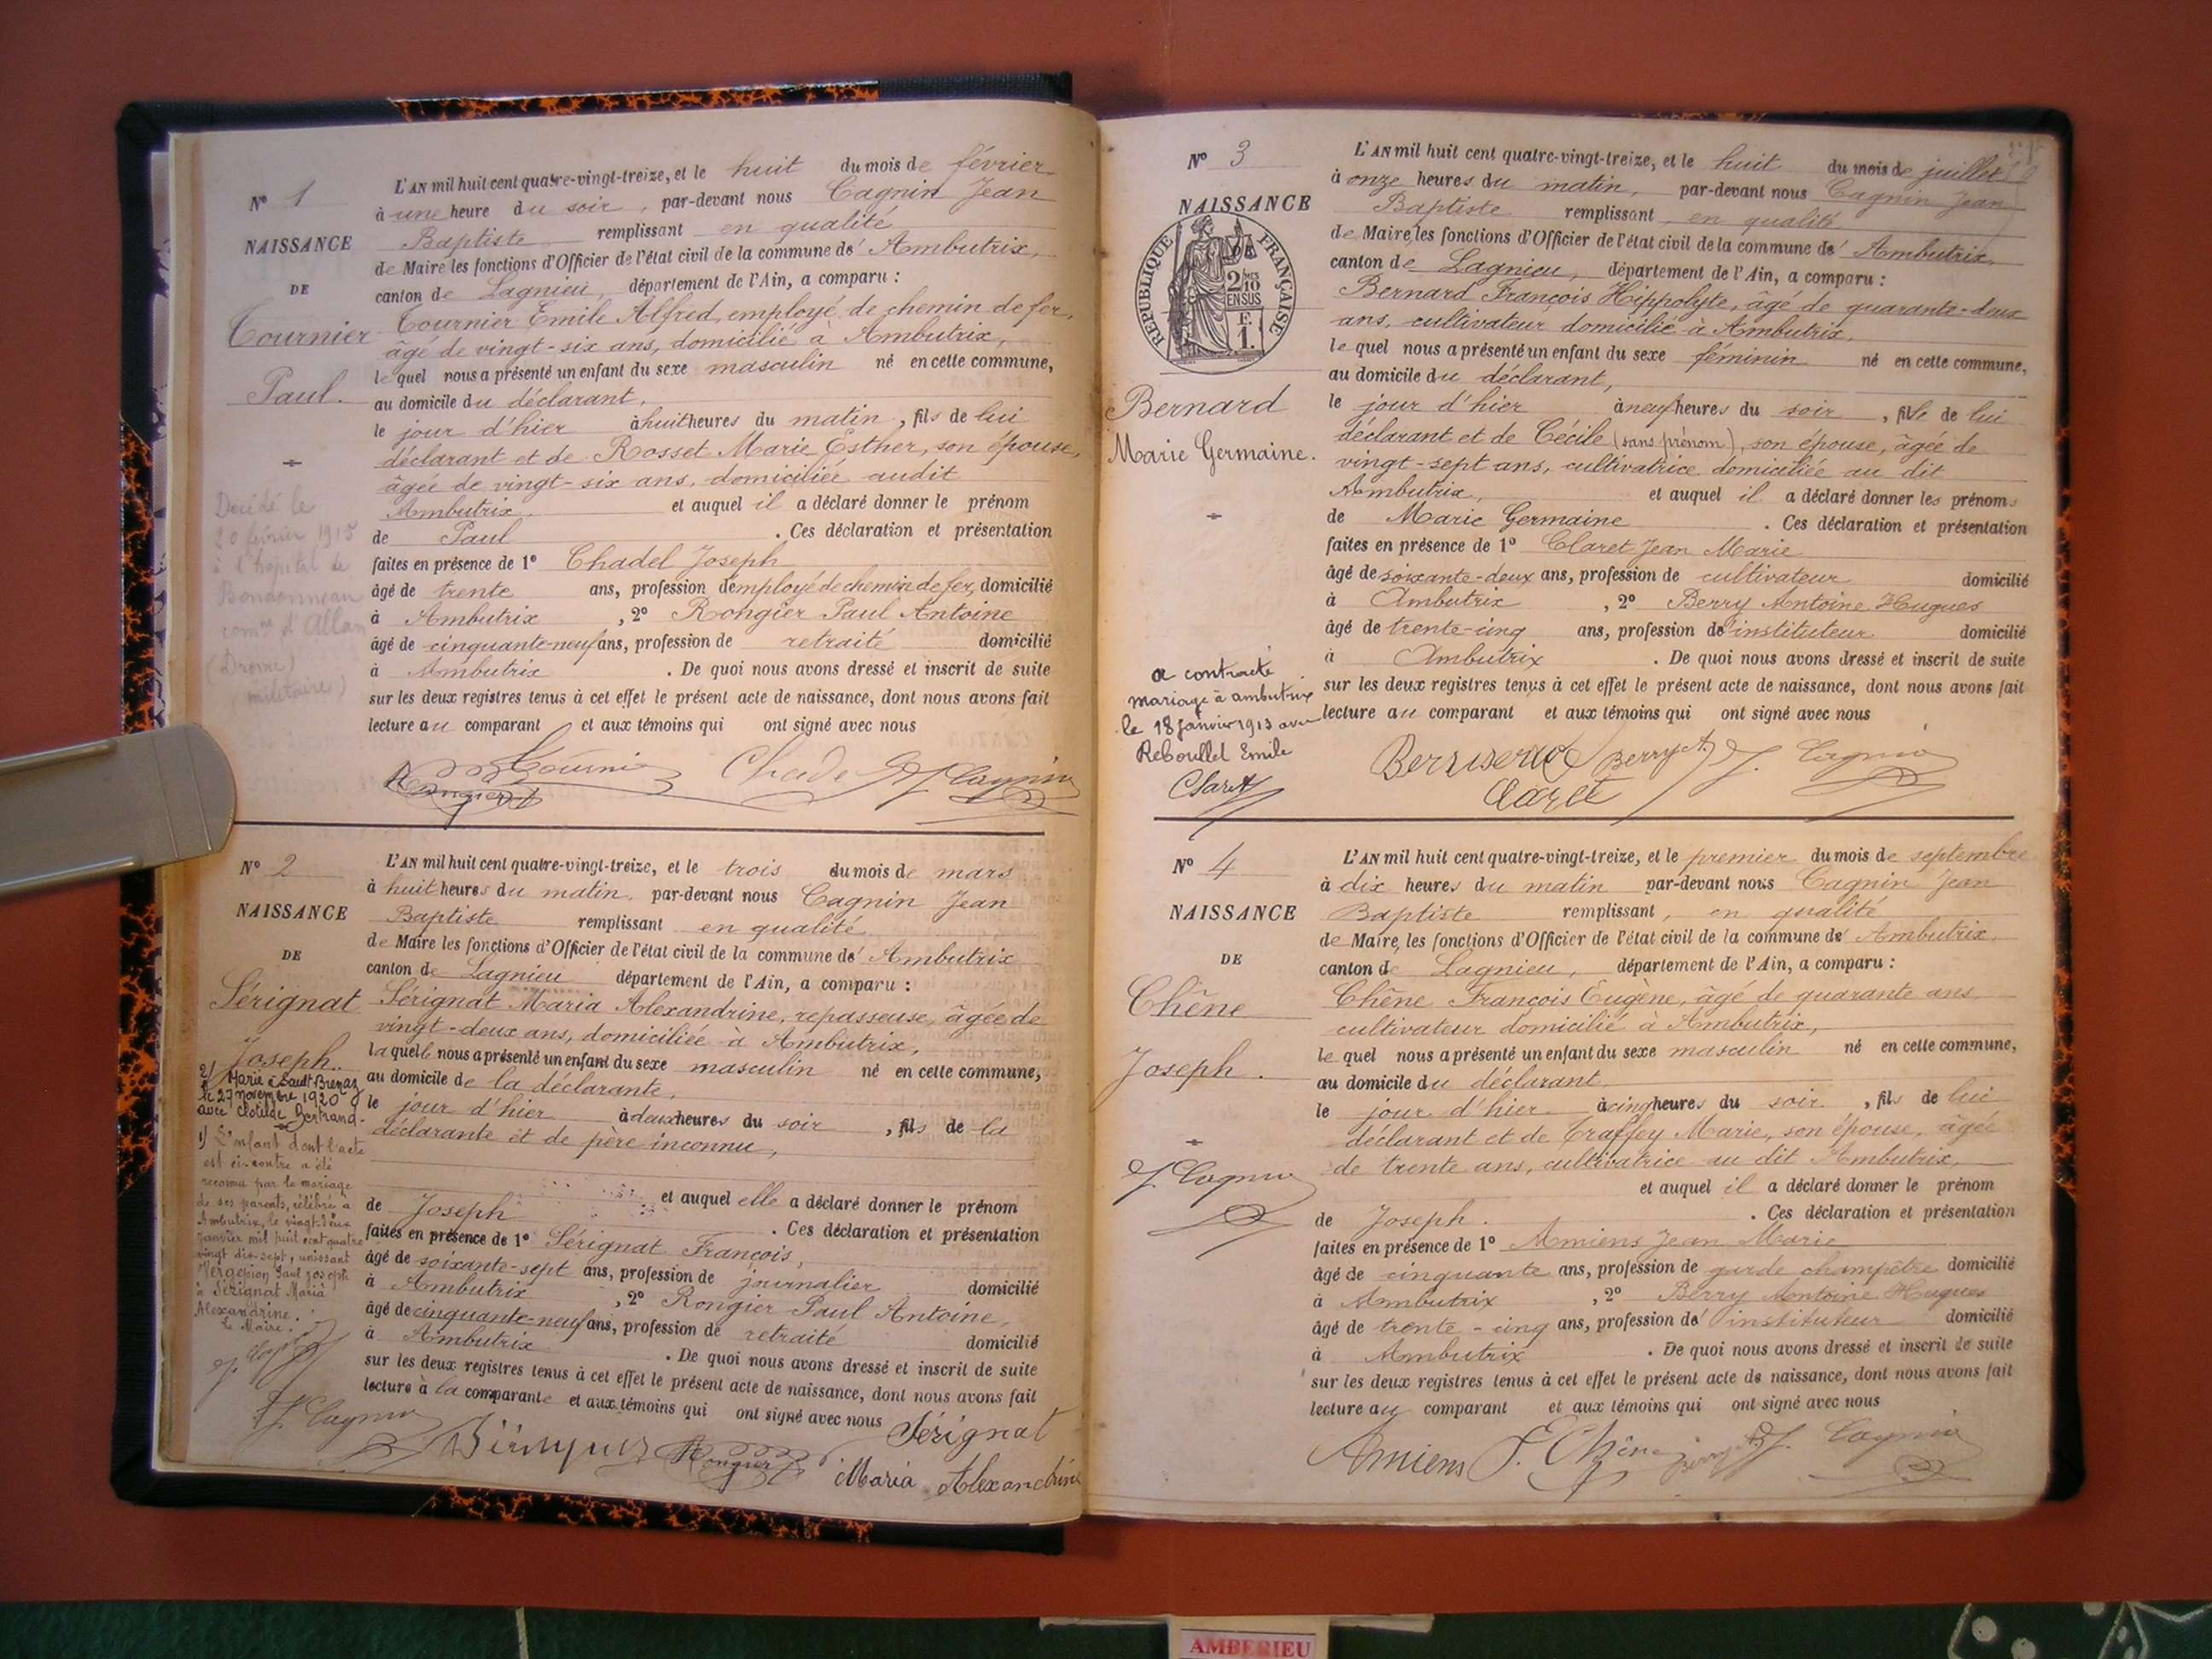 N° 1
NAISSANCE
DE
Tournier
Paul.
Décédé le
20 février 1915
à l'hôpital de
Bondonneau
comne d'Allan
(Drome)
militaire)
L'AN mil huit cent quatre-vingt-treize, et le huit du mois de février
à une heure du soir, par-devant nous Cagnin Jean
Baptiste remplissant en qualité
de Maire les fonctions d'Officier de l'état civil de la commune d' Ambutrix,
canton de Lagnieu, département de l'Ain, a comparu :
Tournier Emile Alfred, employé de chemin de fer,
âgé de vingt-six ans, domicilié à Ambutrix,
lequel nous a présenté un enfant du sexe masculin né en cette commune,
au domicile du déclarant,
le jour d'hier à huit heures du matin, fils de lui
déclarant et de Rosset Marie Esther, son épouse,
âgée de vingt-six ans, domiciliée audit
Ambutrix, et auquel il a déclaré donner le prénom
de Paul . Ces déclaration et présentation
faites en présence de 1° Chadel Joseph
âgé de trente ans, profession d'employé de chemin de fer, domicilié
à Ambutrix , 2° Rongier Paul Antoine
âgé de cinquante-neuf ans, profession de retraité domicilié
à Ambutrix . De quoi nous avons dressé et inscrit de suite
sur les deux registres tenus à cet effet le présent acte de naissance, dont nous avons fait
lecture au comparant et aux témoins qui ont signé avec nous
Tournier Chadel J. Cagnin
Rongier
N° 2
NAISSANCE
DE
Sérignat
Joseph.
2) Marié à Sault Brenaz
le 27 novembre 1920
avec Clotilde Bertrand.
1) L'enfant dont l'acte
est ci-contre a été
reconnu par le mariage
de ses parents, célébré à
Ambutrix, le vingt-deux
janvier mil huit cent quatre
vingt dix-sept, unissant
Paul Joseph
à Sérignat Maria
Alexandrine.
Le Maire.
J. Cagnin
L'AN mil huit cent quatre-vingt-treize, et le trois du mois de mars
à huit heures du matin, par-devant nous Cagnin Jean
Baptiste remplissant en qualité
de Maire les fonctions d'Officier de l'état civil de la commune d' Ambutrix
canton de Lagnieu département de l'Ain, a comparu :
Sérignat Maria Alexandrine, repasseuse, âgée de
vingt-deux ans, domiciliée à Ambutrix,
laquelle nous a présenté un enfant du sexe masculin né en cette commune,
au domicile de la déclarante,
le jour d'hier à deux heures du soir , fils de la
déclarante et de père inconnu,
et auquel elle a déclaré donner le prénom
de Joseph . Ces déclaration et présentation
faites en présence de 1° Sérignat François,
âgé de soixante-sept ans, profession de journalier domicilié
à Ambutrix , 2° Rongier Paul Antoine,
âgé de cinquante-neuf ans, profession de retraité domicilié
à Ambutrix . De quoi nous avons dressé et inscrit de suite
sur les deux registres tenus à cet effet le présent acte de naissance, dont nous avons fait
lecture à la comparante et aux témoins qui ont signé avec nous Sérignat
J. Cagnin Rongier Maria Alexandrine
N° 3
NAISSANCE
RÉPUBLIQUE FRANÇAISE
2 10
EN SUS
F.
1.
Bernard
Marie Germaine.
a contracté
mariage à ambutrix
le 18 Janvier 1913 avec
Reboullet Emile
Claret
L'AN mil huit cent quatre-vingt-treize, et le huit du mois de juillet
à onze heures du matin, par-devant nous Cagnin Jean
Baptiste remplissant, en qualité
de Maire, les fonctions d'Officier de l'état civil de la commune d' Ambutrix,
canton de Lagnieu, département de l'Ain, a comparu :
Bernard François Hippolyte, âgé de quarante-deux
ans, cultivateur domicilié à Ambutrix,
lequel nous a présenté un enfant du sexe féminin né en cette commune,
au domicile du déclarant,
le jour d'hier à neuf heures du soir , fille de lui
déclarant et de Cécile (sans prénom), son épouse, âgée de
vingt-sept ans, cultivatrice domiciliée au dit
Ambutrix, et auquel il a déclaré donner les prénoms
de Marie Germaine . Ces déclaration et présentation
faites en présence de 1° Claret Jean Marie
âgé de soixante-deux ans, profession de cultivateur domicilié
à Ambutrix , 2° Berry Antoine Hugues
âgé de trente-cinq ans, profession d'instituteur domicilié
à Ambutrix . De quoi nous avons dressé et inscrit de suite
sur les deux registres tenus à cet effet le présent acte de naissance, dont nous avons fait
lecture au comparant et aux témoins qui ont signé avec nous
Berry A. J. Cagnin
Claret
N° 4
NAISSANCE
DE
Chêne
Joseph.
J. Cagnin
L'AN mil huit cent quatre-vingt-treize, et le premier du mois de septembre
à dix heures du matin par-devant nous Cagnin Jean
Baptiste remplissant, en qualité
de Maire, les fonctions d'Officier de l'état civil de la commune d' Ambutrix,
canton de Lagnieu, département de l'Ain, a comparu :
Chêne François Eugène, âgé de quarante ans
cultivateur domicilié à Ambutrix,
lequel nous a présenté un enfant du sexe masculin né en cette commune,
au domicile du déclarant
le jour d'hier à cinq heures du soir , fils de lui
déclarant et de Traffey Marie, son épouse, âgée
de trente ans, cultivatrice au dit Ambutrix,
et auquel il a déclaré donner le prénom
de Joseph. . Ces déclaration et présentation
faites en présence de 1° Amiens Jean Marie
âgé de cinquante ans, profession de garde champêtre domicilié
à Ambutrix , 2° Berry Antoine Hugues
âgé de trente-cinq ans, profession d'instituteur domicilié
à Ambutrix . De quoi nous avons dressé et inscrit de suite
sur les deux registres tenus à cet effet le présent acte de naissance, dont nous avons fait
lecture au comparant et aux témoins qui ont signé avec nous
Amiens F. Chêne Berry A. J. Cagnin
AMBERIEU